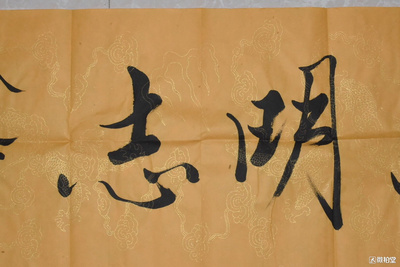 明志
微拍堂